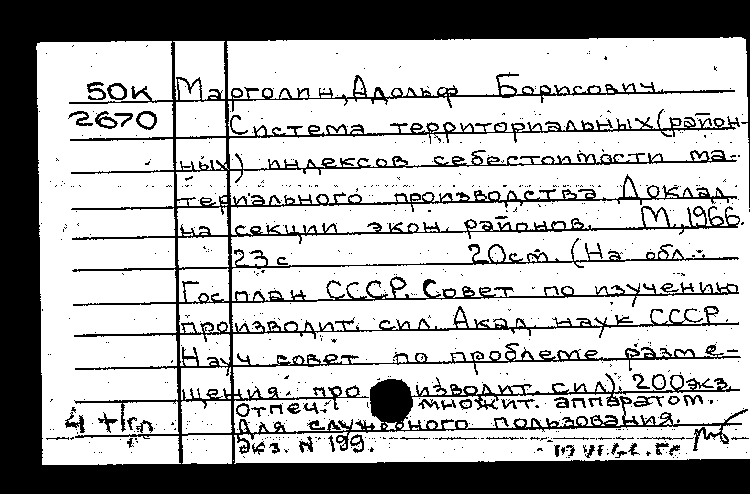 50к Марголин, Адольф Борисович
2670 Система территориальных (район-
ных) индексов себестоимости ма-
териального производства. Доклад
на секции экон. районов. М., 1966.
23 с 20 ст. (На обл.:
Госплан СССР. Совет по изучению
производит. сил. Акад. наук СССР.
Науч. совет по проблеме разме-
щения произволит. сил). 200 экз
Отпеч. множит. аппаратом.
Для служебного пользования.
Экз. N 199.